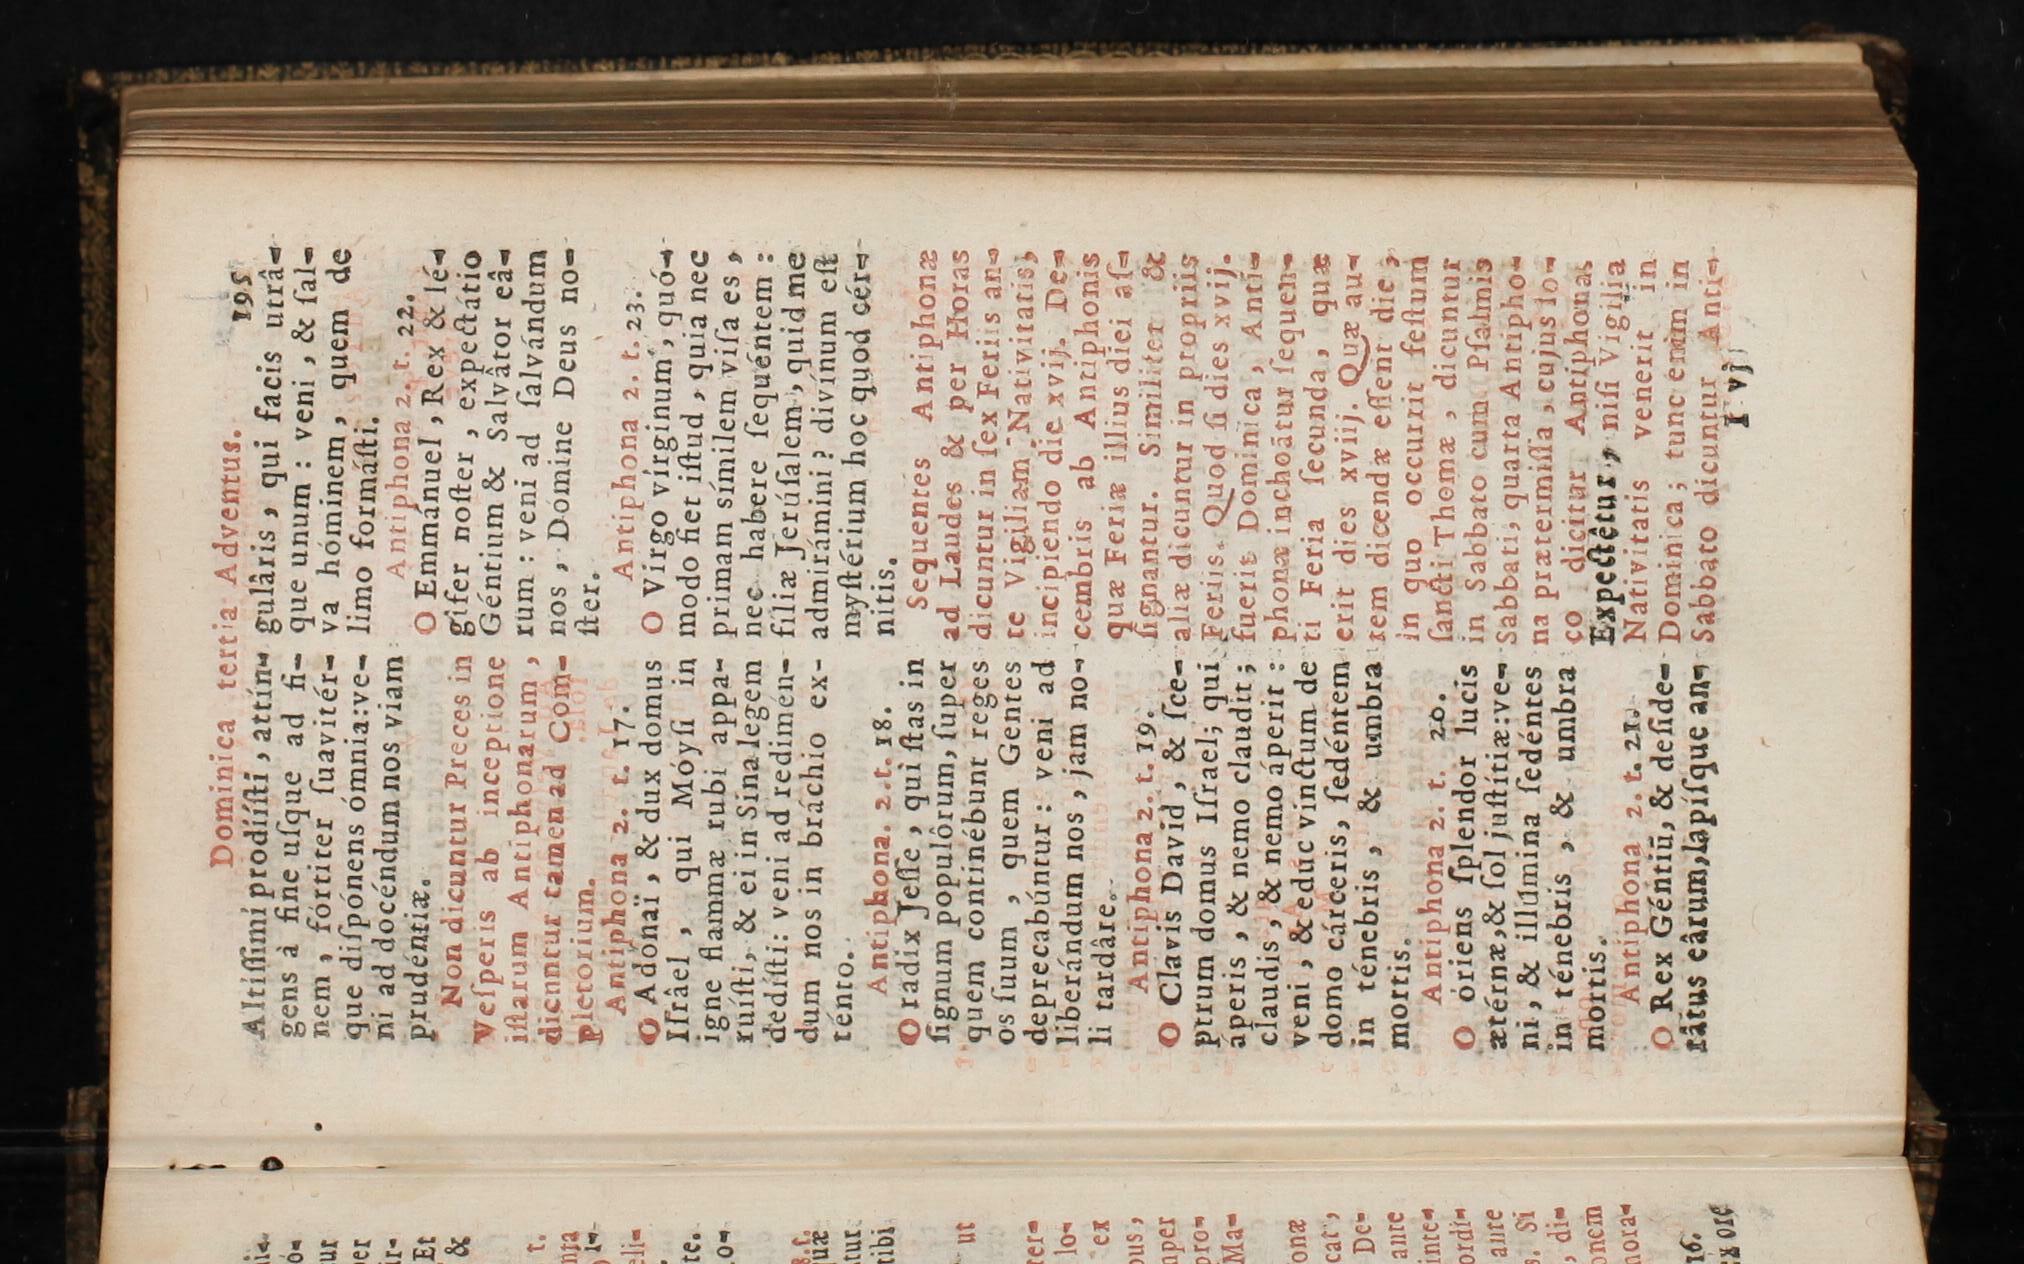 Dominica tertia Adventus. 195
Altiſſimi prodíiſti, attín-
gens à fine uſque ad fi-
nem, fórtiter ſuavitér-
que diſpónens ómnia: ve-
ni ad docéndum nos viam
prudéntiæ.
Non dicuntur Preces in
Veſperis ab inceptione
iſtarum Antiphonarum,
dicuntur tamen ad Com-
pletorium.
Antiphona 2. t. 17.
O Adónaï, & dux domus
Iſrâel, qui Móyſi in
igne flammæ rubi appa-
ruíſti, & ei in Sina legem
dedíſti: veni ad redimén-
dum nos in bráchio ex-
ténto.
Antiphona. 2. t. 18.
O radix Jeſſe, qui ſtas in
ſignum populôrum, ſuper
quem continébunt reges
os ſuum, quem Gentes
deprecabúntur: veni ad
liberándum nos, jam no-
li tardâre.
Antiphona 2. t. 19.
O Clavis David, & ſce-
ptrum domus Iſrael; qui
áperis, & nemo claudit;
claudis, & nemo áperit:
veni, & edúc vinctum de
domo cárceris, ſedéntem
in ténebris, & umbra
mortis.
Antiphona 2. t. 20.
O óriens ſplendor lucis
ætérnæ, & ſol juſtítiæ: ve-
ni, & illúmina ſedéntes
in ténebris, & umbra
mortis.
Antiphona 2. t. 21.
O Rex Géntiũ, & deſide-
râtus eârum, lapíſque an-
gulâris, qui facis utrâ-
que unum: veni, & ſal-
va hóminem, quem de
limo formáſti.
Antiphona 2. t. 22.
O Emmánuel, Rex & lé-
gifer noſter, expectátio
Géntium & Salvâtor eâ-
rum: veni ad ſalvándum
nos, Domine Deus no-
ſter.
Antiphona 2. t. 23.
O Virgo vírginum, quó-
modo fiet iſtud, quia nec
primam símilem viſa es,
nec habere ſequéntem:
filiæ Jerúſalem, quid me
admirámini? divínum eſt
myſtérium hoc quod cér-
nitis.
Sequentes Antiphonæ
ad Laudes & per Horas
dicuntur in ſex Feriis an-
te Vigiliam Nativitatis,
incipiendo die xvij. De-
cembris ab Antiphonis
quæ Feriæ illius diei aſ-
ſignantur. Similiter &
aliæ dicuntur in propriis
Feriis. Quod ſi dies xvij.
fuerit Dominica, Anti-
phonæ inchoãtur ſequen-
ti Feria ſecunda, quæ
erit dies xviij. Quæ au-
tem dicendæ eſſent die,
in quo occurrit feſtum
ſancti Thomæ, dicuntur
in Sabbato cum Pſalmis
Sabbati, quarta Antipho-
na prætermiſſa, cujus lo-
co dicitur Antiphona
Expectêtur, niſi Vigilia
Nativitatis venerit in
Dominica; tunc enim in
Sabbato dicuntur Anti-
I vj